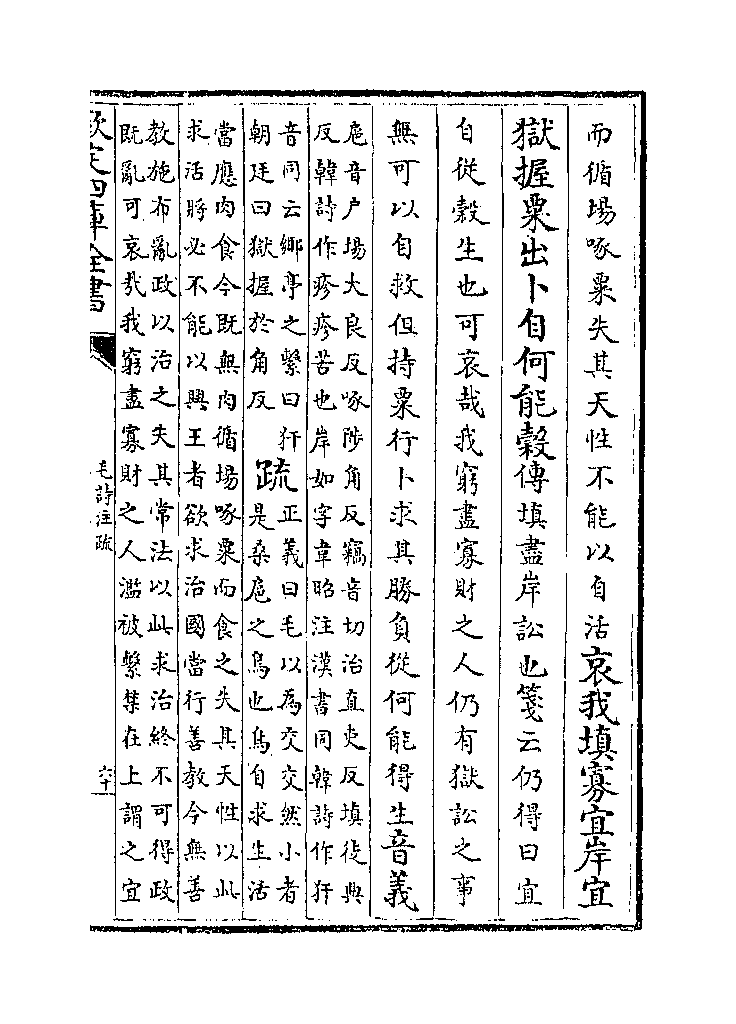 而循場啄粟失其天性不能以自活哀我填寡宜岸宜
獄握粟出卜自何能穀傳填盡岸訟也箋云仍得曰宜
自從穀生也可哀哉我窮盡寡財之人仍有獄訟之事
無可以自救但持粟行卜求其勝負從何能得生音義
扈音户場大良反啄陟角反竊音切治直吏反填徒典
反韓詩作疹疹苦也岸如字韋昭注漢書同韓詩作犴
音同云鄉亭之繫曰犴
朝廷曰獄握於角反
疏
正義曰毛以為交交然小者
是桑扈之鳥也鳥自求生活
當應肉食今既無肉循場啄粟而食之失其天性以此
求活將必不能以興王者欲求治國當行善教今無善
教施布亂政以治之失其常法以此求治終不可得政
既亂可哀哉我窮盡寡財之人濫被繫禁在上謂之宜
欽定四庫全書
毛詩注疏
六十